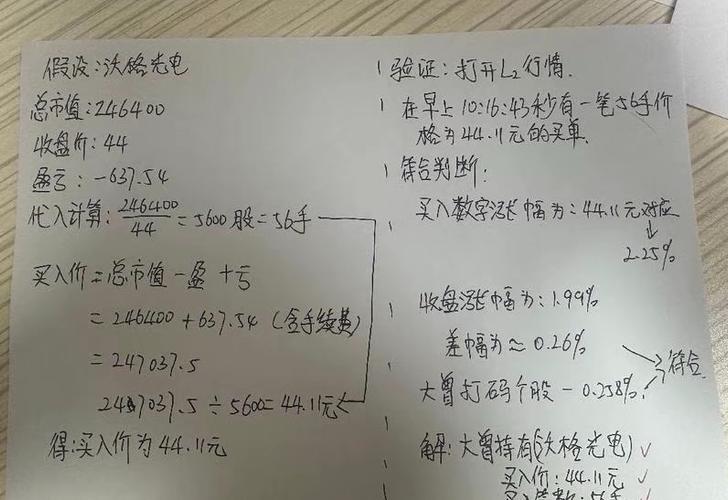 假设:沃格光电
总市值:246400
收盘价:44
盈亏:-637.54
代入计算:246400/44=5600股=56手
买入价=总市值-盈+亏
=246400+637.54(含手续费)
=247037.5
247037.5÷5600=44.11元
得:买入价为44.11元
验证:打开L2行情.
在早上10:16:43秒有一笔56手价
格为44.11元的买单.
符合判断:
买入数字涨幅为:44.11元对应
↓
2.25%
收盘涨幅为:1.99%
差幅为≈0.26%
符合
大曾打码个股-0.258%.
解:大曾持有(沃格光电)✓
买入价:44.11元✓